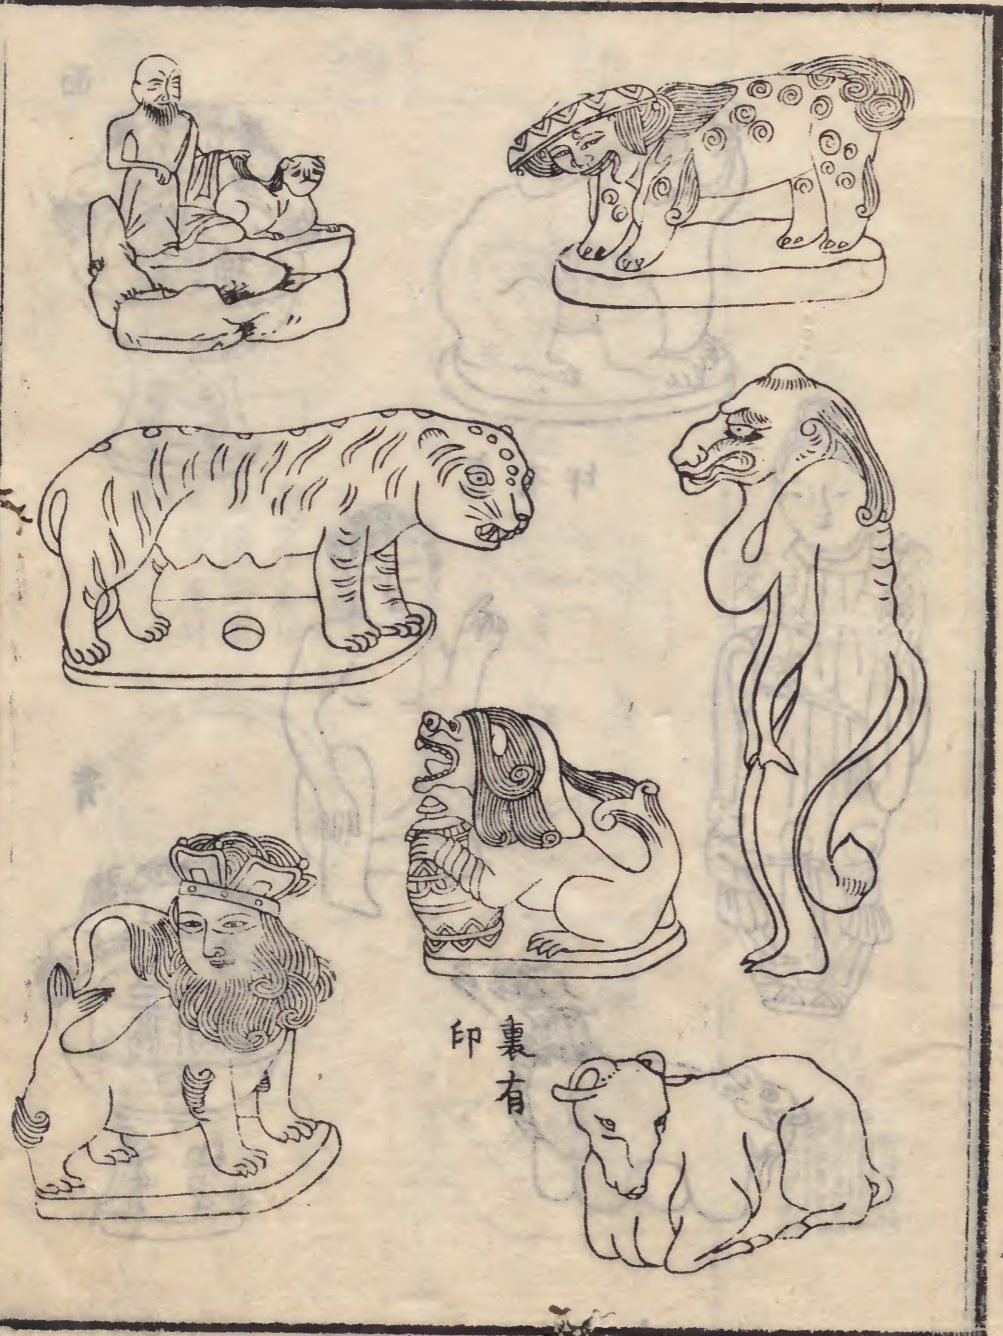 裏有
印